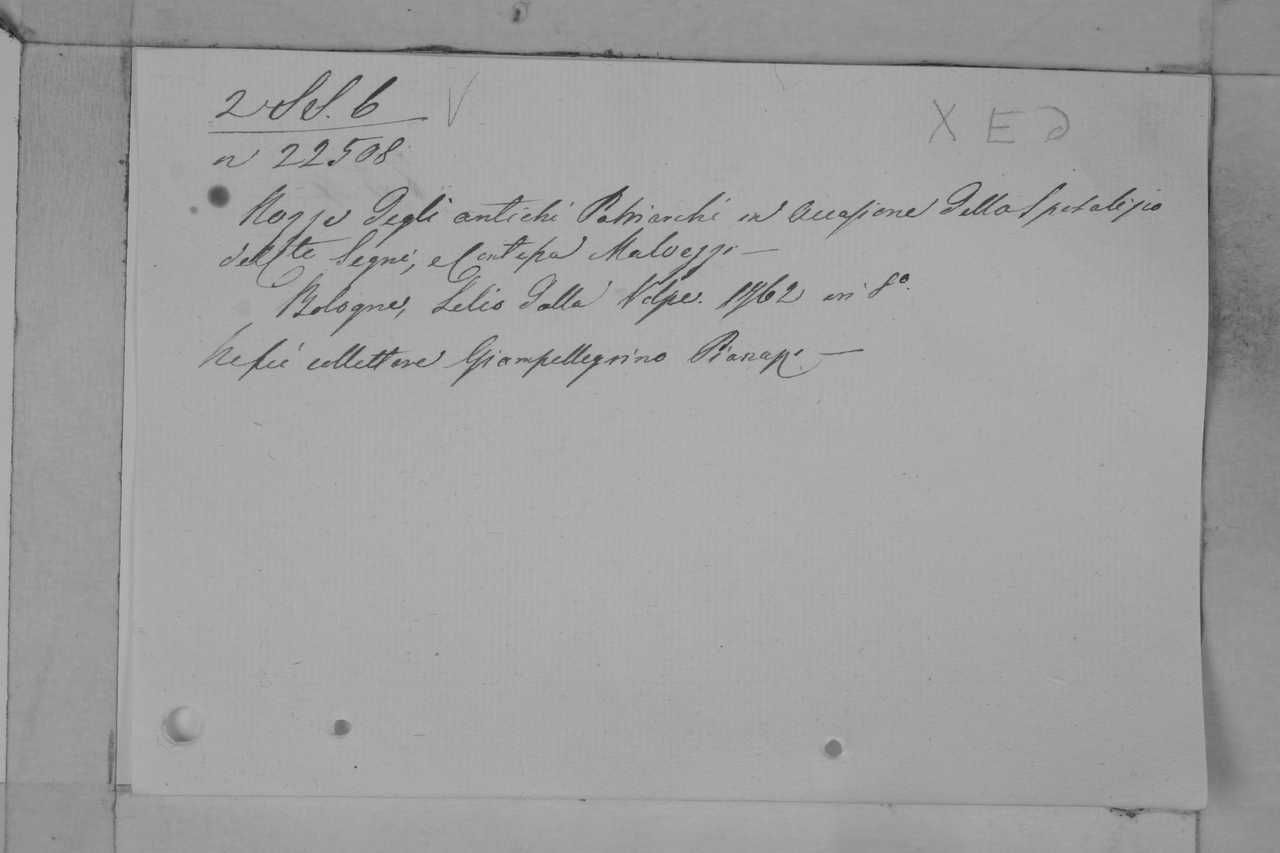 2 SS. 6 V
X E D
n 22508
Nozze degli antichi Patriarchi in Occasione dello Sposalizio
del Cte Segni, e Contessa Malvezzi —
Bologna, Lelio dalla Volpe. 1762 in 8º.
Ne fu collettore Giampellegrino